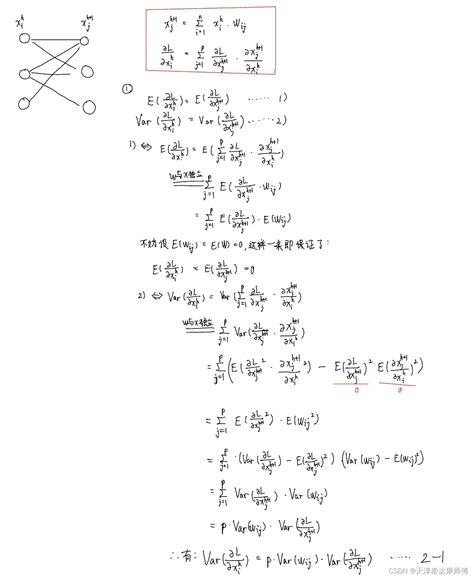 x_i^h x_j^{h+1}
x_j^{h+1} = \sum_{i=1}^{n} x_i^h · w_{ij}
\frac{∂L}{∂x_i^h} = \sum_{j=1}^{p} \frac{∂L}{∂x_j^{h+1}} · \frac{∂x_j^{h+1}}{∂x_i^h}
①
E(\frac{∂L}{∂x_i^h}) = E(\frac{∂L}{∂x_j^{h+1}}) ······ 1)
Var(\frac{∂L}{∂x_i^h}) = Var(\frac{∂L}{∂x_j^{h+1}}) ······ 2)
1) ⇔ E(\frac{∂L}{∂x_i^h}) = E(\sum_{j=1}^{p} \frac{∂L}{∂x_j^{h+1}} · \frac{∂x_j^{h+1}}{∂x_i^h})
w与x独立 \sum_{j=1}^{p} E(\frac{∂L}{∂x_j^{h+1}} · w_{ij})
= \sum_{j=1}^{p} E(\frac{∂L}{∂x_j^{h+1}}) · E(w_{ij})
不妨设 E(w_{ij}) = E(W) = 0, 这样一来即保证了:
E(\frac{∂L}{∂x_i^h}) = E(\frac{∂L}{∂x_j^{h+1}}) = 0
2) ⇔ Var(\frac{∂L}{∂x_i^h}) = Var(\sum_{j=1}^{p} \frac{∂L}{∂x_j^{h+1}} · \frac{∂x_j^{h+1}}{∂x_i^h})
w与x独立 \sum_{j=1}^{p} Var(\frac{∂L}{∂x_j^{h+1}} · \frac{∂x_j^{h+1}}{∂x_i^h})
= \sum_{j=1}^{p} (E(\frac{∂L}{∂x_j^{h+1}}^2 · \frac{∂x_j^{h+1}}{∂x_i^h}^2) - E(\frac{∂L}{∂x_j^{h+1}})^2 E(\frac{∂x_j^{h+1}}{∂x_i^h})^2)
0 0
= \sum_{j=1}^{p} E(\frac{∂L}{∂x_j^{h+1}}^2) · E(w_{ij}^2)
= \sum_{j=1}^{p} · (Var(\frac{∂L}{∂x_j^{h+1}}) - E(\frac{∂L}{∂x_j^{h+1}})^2) (Var(w_{ij}) - E(w_{ij})^2)
= \sum_{j=1}^{p} Var(\frac{∂L}{∂x_j^{h+1}}) · Var(w_{ij})
= p · Var(w_{ij}) · Var(\frac{∂L}{∂x_j^{h+1}})
∴ 有: Var(\frac{∂L}{∂x_i^h}) = p · Var(w_{ij}) · Var(\frac{∂L}{∂x_j^{h+1}}) ······ 2-1
CSDN @天津泰达康师傅